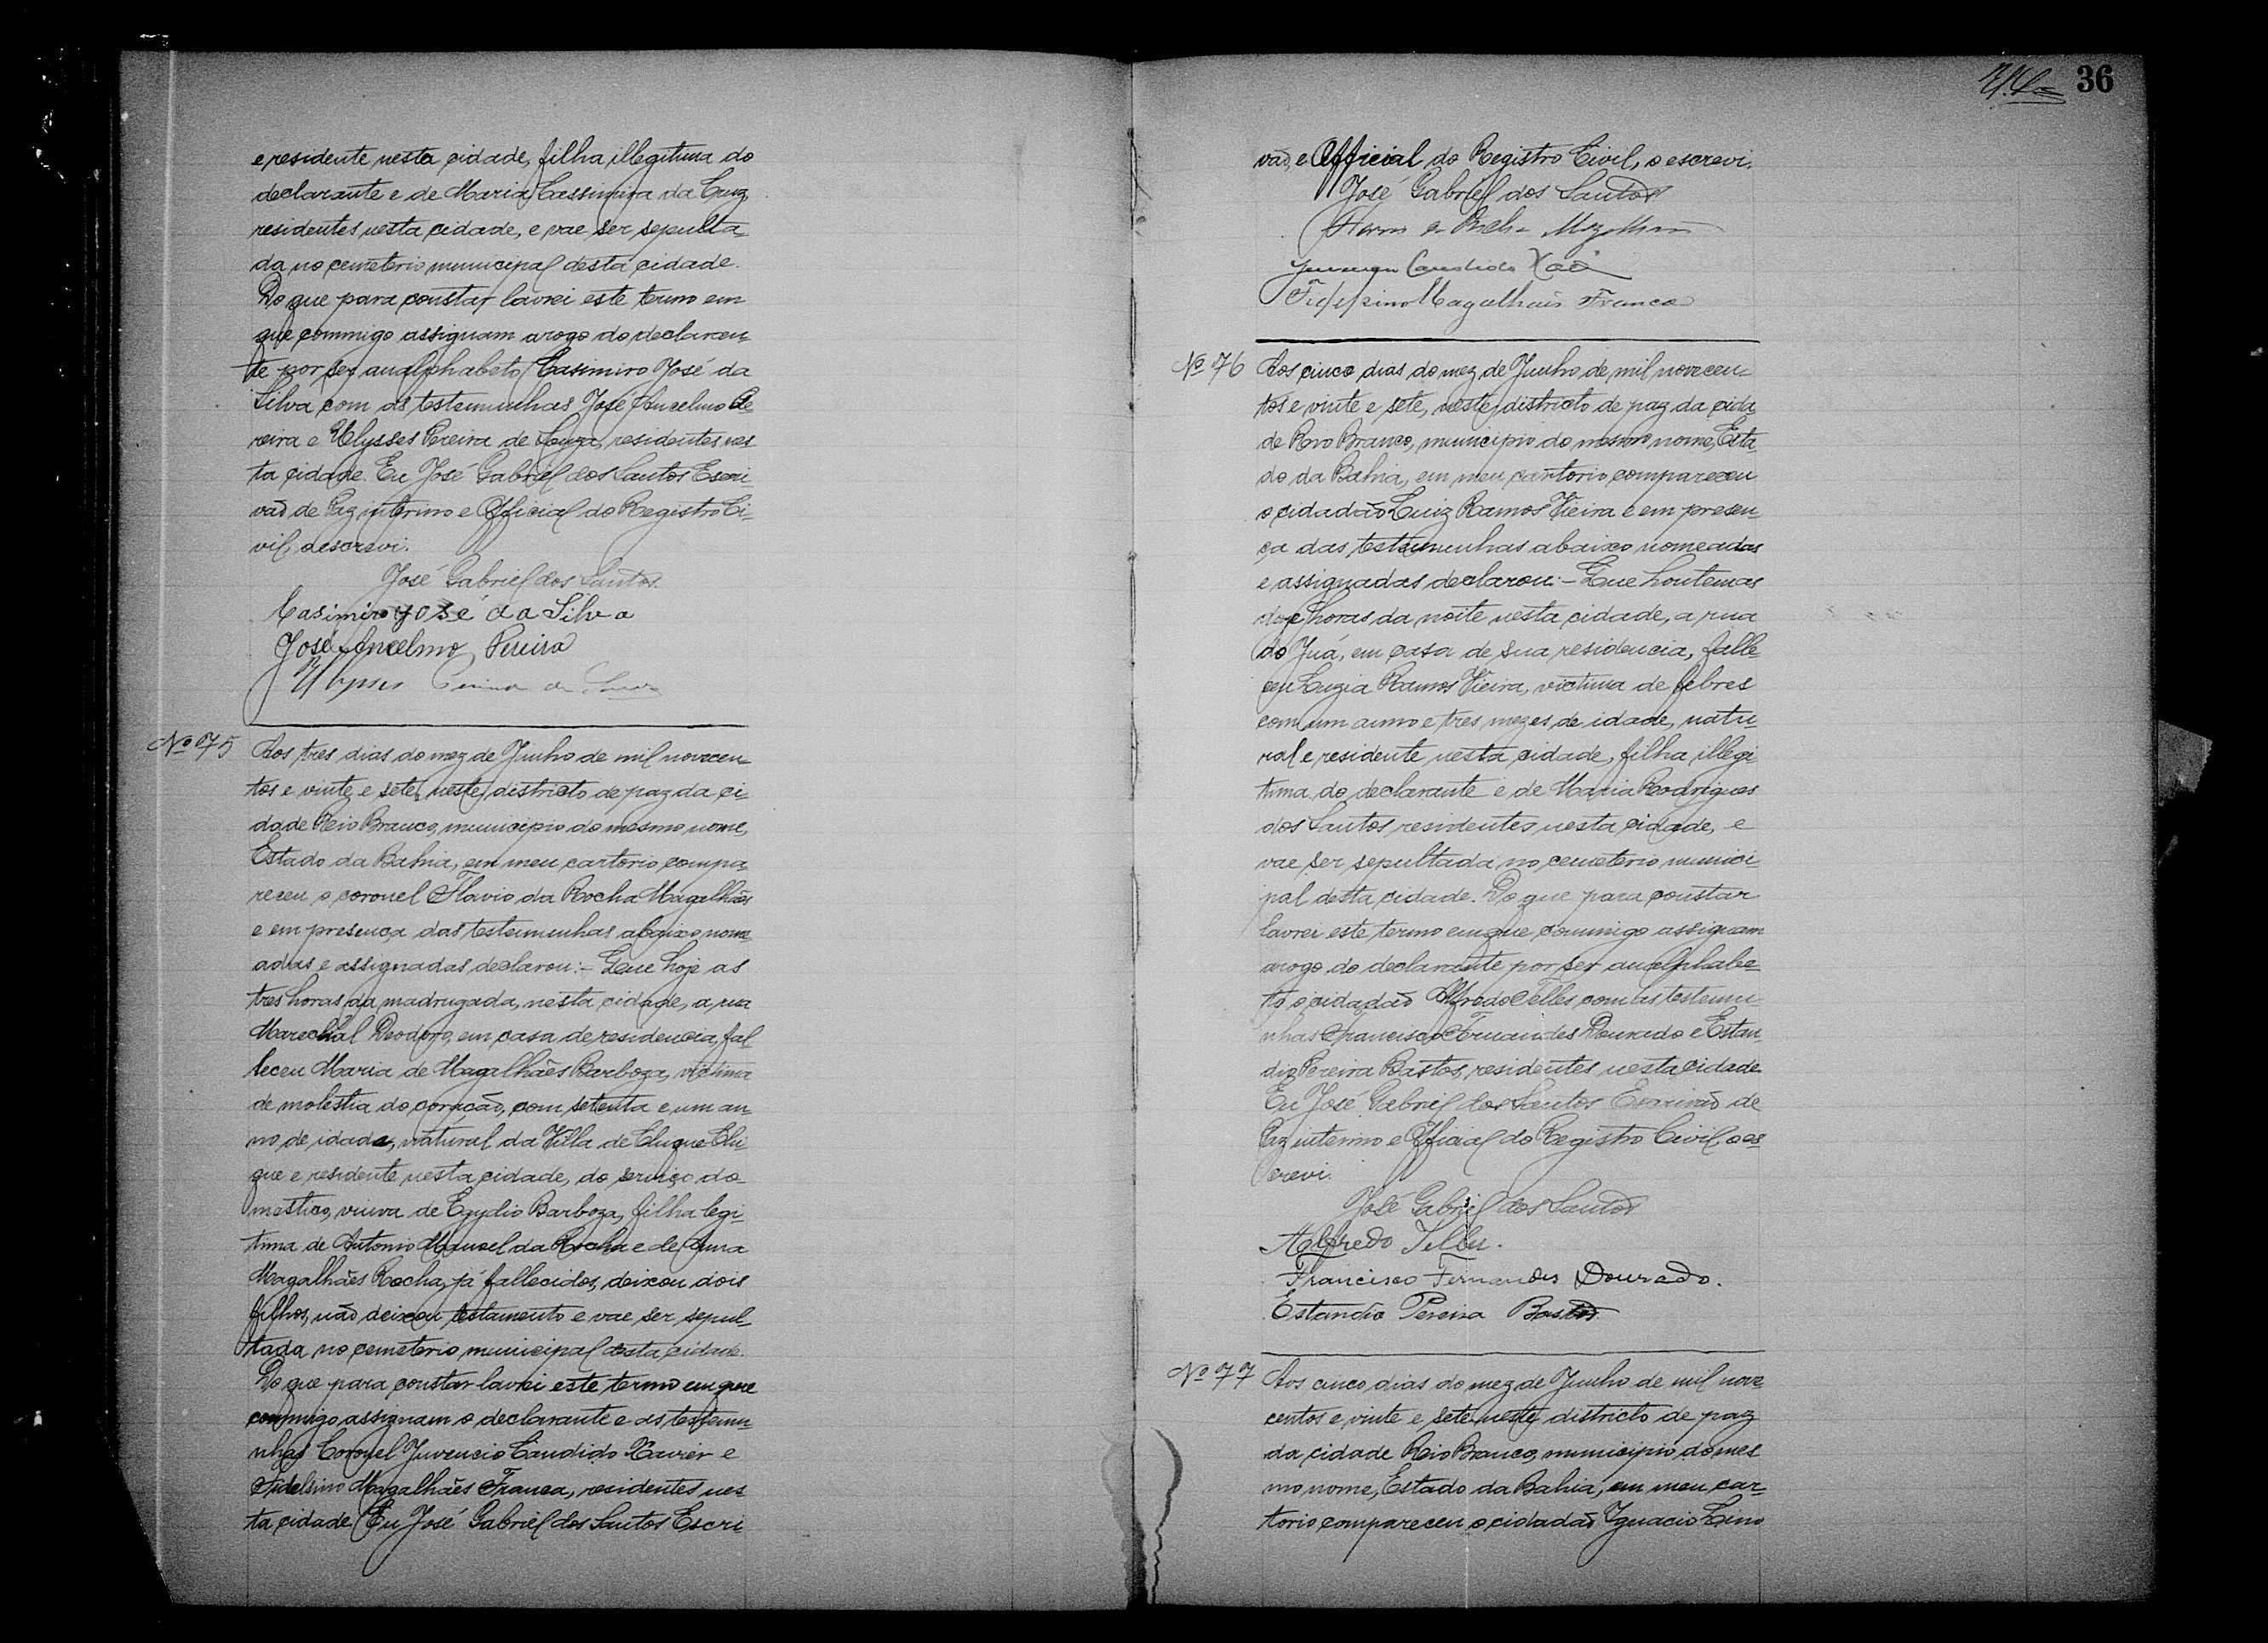 e residente nesta cidade, filha illegitima do
declarante e de Maria Cassimira da Cruz,
residentes nesta cidade, e vae ser sepulta-
da no cemeterio municipal desta cidade.
Do que para constar lavrei este termo em
que commigo assignam arogo do declaran-
te por ser analphabeto, Casimiro José da
Silva com as testemunhas José Ancelmo Pe
reira e Ulysses Pereira de Souza, residentes nes
ta cidade. Eu José Gabriel dos Santos Escri-
vão de Paz interino e Official do Registro Ci-
vil, o escrevi.
José Gabriel dos Santos.
Casimiro José da Silva
José Ancelmo Pereira
Nº 75 Aos tres dias do mez de Junho de mil novecen-
tos e vinte e sete, neste districto de paz da ci-
dade Rio Branco, municipio do mesmo nome,
Estado da Bahia, em meu cartorio compa-
receu o coronel Flavio da Rocha Magalhães
e em presença das testemunhas abaixo nome
adas e assignadas declarou:- Que hoje as
tres horas da madrugada, nesta cidade, a rua
Marechal Deodoro, em casa de residencia, fal-
leceu Maria de Magalhães Barboza, victima
de molestia do coração, com setenta e um an-
no de idade, natural da Villa de Chique Chi-
que e residente nesta cidade, do serviço do-
mestico, viuva de Egydio Barboza, filha legi-
tima de Antonio Manoel da Rocha e de Anna
Magalhães Rocha, já fallecidos, deixou dois
filhos, não deixou testamento e vae ser sepul-
tada no cemeterio municipal desta cidade.
Do que para constar lavrei este termo em que
commigo assignam o declarante e as testemu-
nhas Coronel Juvencio Candido Xavier e
Fidelsino Magalhães Franca, residentes nes
ta cidade. Eu José Gabriel dos Santos Escri
36
vão, e Official do Registro Civil, o escrevi.
José Gabriel dos Santos
Candido
Magalhães Franca
Nº 76 Aos cinco dias do mez de Junho de mil novecen-
tos e vinte e sete, neste districto de paz da cida
de Rio Branco, municipio do mesmo nome, Esta
do da Bahia, em meu cartorio compareceu
o cidadão Luiz Ramos Vieira e em presen-
ça das testemunhas abaixo nomeadas
e assignadas declarou:- Que hontem as
doze horas da noite nesta cidade, a rua
do Juá, em casa de sua residencia, falle-
ceu Luzia Ramos Vieira, victima de febres
com um anno e tres mezes de idade, natu
ral e residente nesta cidade, filha illegi
tima do declarante e de Maria Rodrigues
dos Santos residentes nesta cidade, e
vae ser sepultada no cemeterio munici-
pal desta cidade. Do que para constar
lavrei este termo em que commigo assignam
arogo do declarante por ser analphabe-
to o cidadão Alfredo Telles com as testemu-
nhas Francisco Fernandes Dourado e Estan-
diz Pereira Bastos, residentes nesta cidade.
Eu José Gabriel dos Santos Escrivão de
Paz interino e Official do Registro Civil o es-
crevi.
José Gabriel dos Santos
Alfredo Telles.
Francisco Fernandes Dourado.
Pereira Bastos
Nº 77 Aos cinco dias do mez de Junho de mil nove-
centos e vinte e sete neste districto de paz
da cidade Rio Branco, municipio do mes
mo nome, Estado da Bahia, em meu car-
torio compareceu o cidadão Ignacio Lino